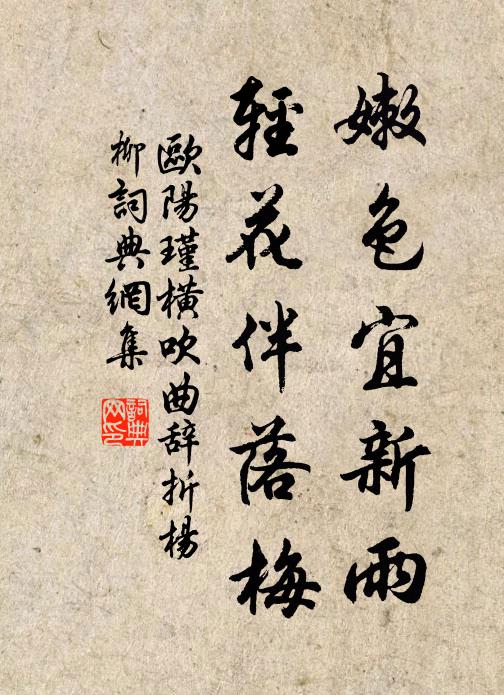 嫩色宜新雨
輕花伴落梅
歐陽瑾橫吹曲辞折楊
柳詞典網集
詞典
网印